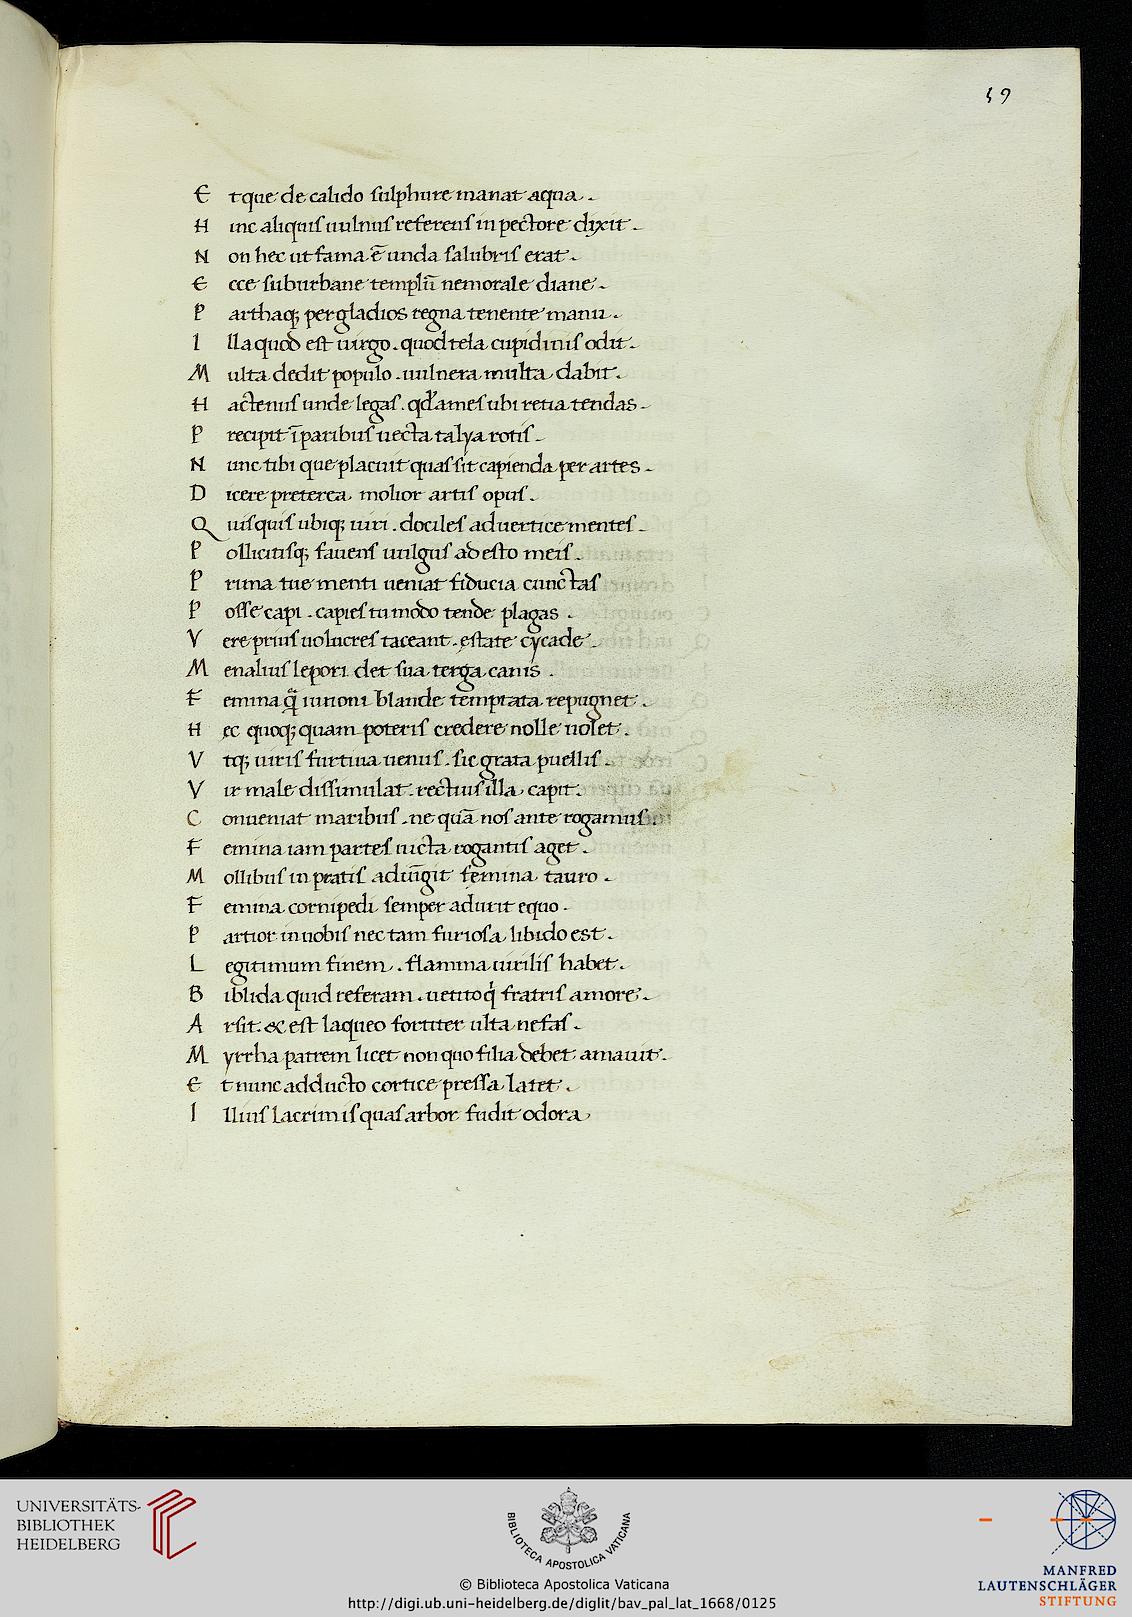 59
E tque de calido sulphure manat aqua.
H inc aliquis uulnus referens in pectore dixit.
N on hec ut fama ē unda salubris erat.
E cce suburbane templū nemorale diane.
P arthaq; per gladios regna tenente manu.
I lla quod est uirgo. quod tela cupidinis odit.
M ulta dedit populo. uulnera multa dabit.
H actenus unde legas. qđ ames ubi retia tendas.
P recipit īparibus uecta talya rotis.
N unc tibi que placuit quas sit capienda per artes.
D icere preterea molior artis opus.
Q uisquis ubiq; uiri. dociles aduertice mentes.
P ollicitisq; fauens uulgus adesto meis.
P rima tue menti ueniat fiducia cunctas
P osse capi. capies tu modo tende plagas.
V ere prius uolucres taceant. estate cycade.
M enalius lepori det sua terga canis.
F emina q̄ iuuoni blande temptata repugnet.
H ec quoq; quam poteris credere nolle uolet.
V tq; uiris furtiua uenus. sic grata puellis.
V ir male dissimulat. rectius illa capit.
C onueniat maribus. ne quā nos ante rogamus.
F emina iam partes uicta rogantis aget.
M ollibus in pratis adūgit femina tauro.
F emina cornipedi semper adurit equo.
P artior in uobis nec tam furiosa libido est.
L egitimum finem. flamma uirilis habet.
B iblida quid referam. uetito q̇ fratris amore.
A rsit. & est laqueo fortiter ulta nefas.
M yrrha patrem licet non quo filia debet amauit.
E t nunc adducto cortice pressa latet.
I llius lacrimis quas arbor fudit odora
UNIVERSITÄTS-
BIBLIOTHEK
HEIDELBERG
BIBLIOTECA APOSTOLICA VATICANA
MANFRED
LAUTENSCHLÄGER
STIFTUNG
© Biblioteca Apostolica Vaticana
http://digi.ub.uni-heidelberg.de/diglit/bav_pal_lat_1668/0125